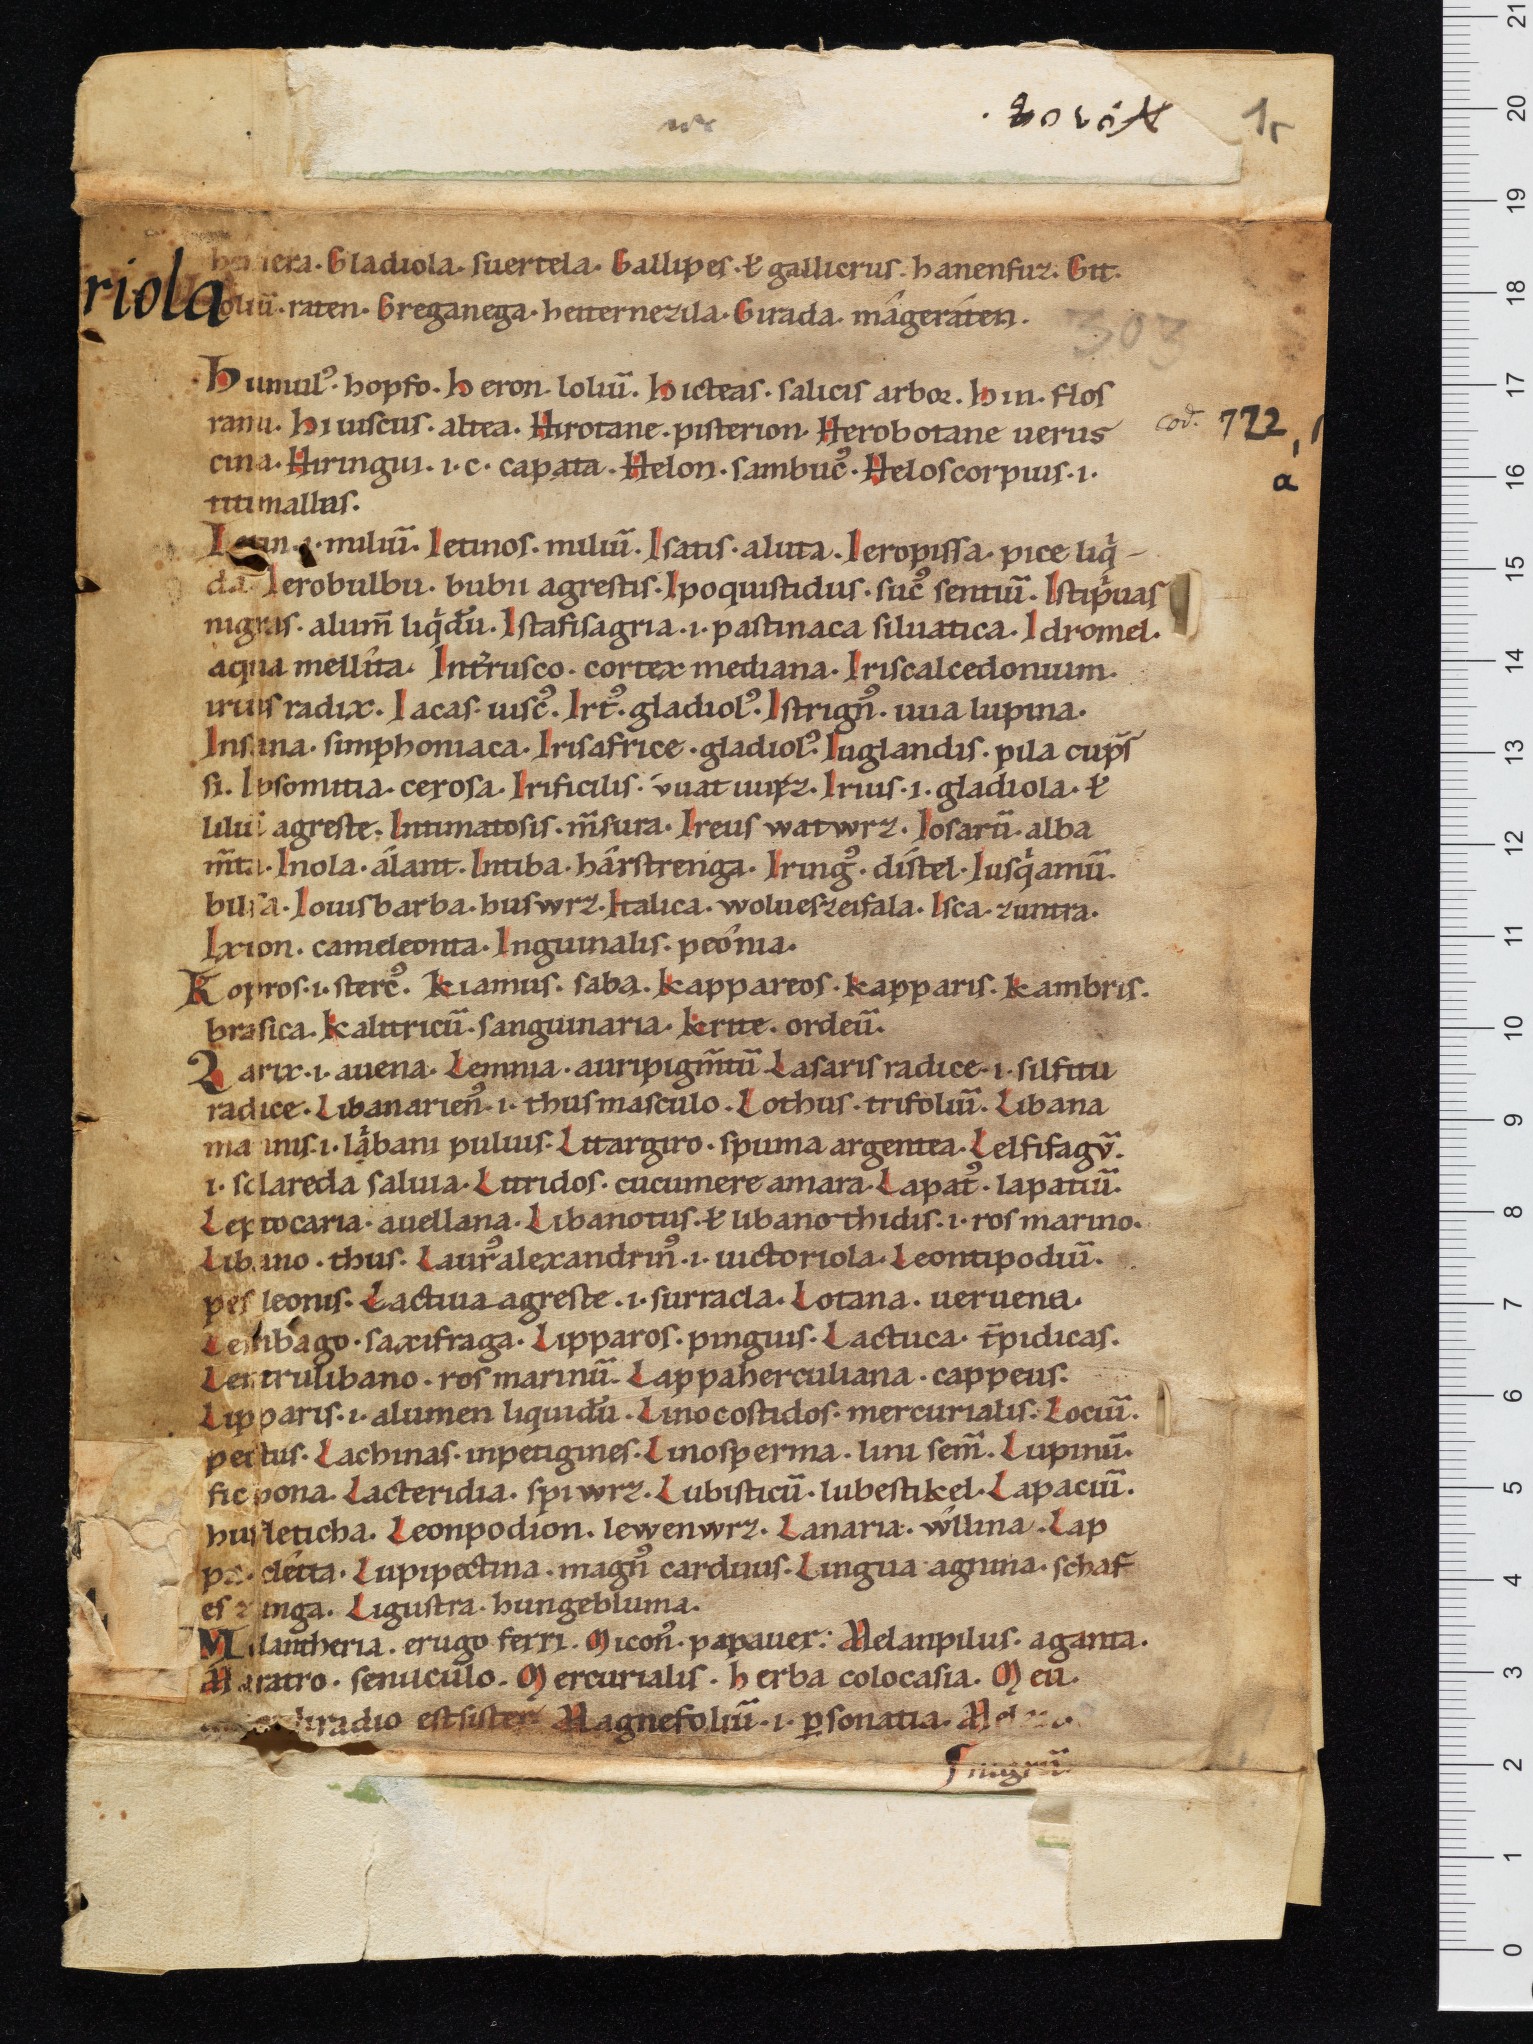 1r
riola
Gladiola. suertela. Gallipes. ł gallicrus. hanenfuz. Git.
raten. Greganega. heiternezila. Girada. mágeráten.
303
Humul᷒. hopfo. Heron. loliū. Hicteas. salicis arbor. Hin. flos
ranu. Hiuiscus. altea. Hirotane. pisterion. Herobotane uerus
cod. 772, 1
a
cina. Hiringui. i. c. capata. Helon. sambuc᷒. Heloscorpius. i.
titimallus.
i. miliū. Ietinos. miliū. Isatis. aluta. Ieropissa. pice liqͥ-
da. Ierobulbu. bubu agrestis. Ipoquistidus. suc᷒ sentiū. Istipͥuas
nigras. alum̄ liqͥdū. Istafisagria. i. pastinaca siluatica. Idromel.
aqua mellita. Int̄rusco. cortex mediana. Iriscalcedonium.
irius radix. Iacas. uisc᷒. Irt᷒. gladiol᷒. Istrign᷒. uua lupina.
Insana. simphoniaca. Irisafrice. gladiol᷒. Iuglandis. pila cup̄s
si. Ipsomitia. cerosa. Irificilis. Irius. i. gladiola. ł
liliū agreste. Intimatosis. m̄sura. Ireus watwrz. Iosarū. alba
m̄ta. Inola. álant. Intiba. hárstrenga. Iring᷒. distel. Iusqͥamū.
bilisa. Iouisbarba. huswrz. Italica. wolueszeisala. Isca. zuntra.
Ixion. cameleonta. Inguinalis. peónia.
Kopros. i. sterc᷒. Kiamus. faba. Kappareos. Kapparis. Kambris.
brasica. Kalitricū. sanguinaria. Krite. ordeū.
Larix. i. auena. Lemnia. auripigm̄tū Lasaris radice. i. silfitu
radice. Libanarien᷒. i. thus masculo. Lothus. trifoliū. Libana
manis. i. lͥbani puluis. Litargiro. spuma argentea. Lelfifagū.
i. sclareda saluia. Litridos. cucumere amara. Lapat᷒. lapatiū.
Leptocaria. auellana. Libanotus. ł libanothidis. i. ros marino.
Libano. thus. Laur᷒ alexandrin᷒. i. uictoriola. Leontipodiū.
pes leonis. Lactiua agreste. i. surracla. Lotana. ueruena.
saxifraga. Lipparos. pinguis. Lactuca. t̄pidicas.
Lentrulibano. ros marinū. Lappaherculiana. cappeus.
Lipparis. i. alumen liquidū. Linocostidos. mercurialis. Lociū.
pectus. Lachinas. inpetigines. Linosperma. lini sem̄. Lupinū.
ficpona. Lacteridia. spiwrz. Lubisticū. lubestikel. Lapaciū.
husleticha. Leonpodion. lewenwrz. Lanaria. wíllina. Lap
pa. clétta. Lupipectina. magn᷒ carduus. Lingua agnina. schaf
es zunga. Ligustra. hungebluma.
Milantheria. erugo ferri. Micon᷒. papauer. Melanpilus. aganta.
Maratro. fenuculo. Mercurialis. herba colocasia. Meu.
radio est sister. Magnefoliū. i. p̱sonatia.